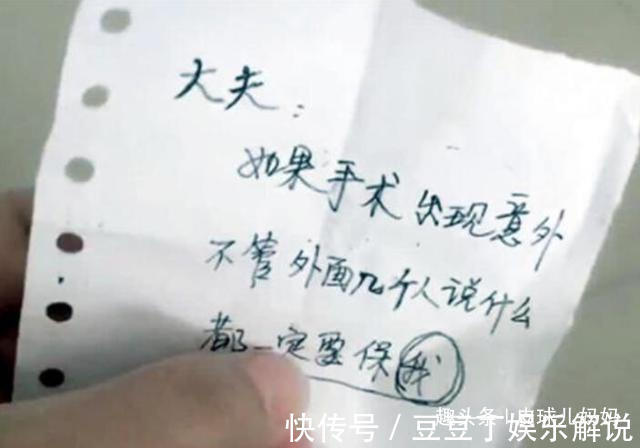 大夫：
如果手术出现意外
不管外面几个人说什么
都一定要保我
趣头条 | 皮球儿妈妈
快传号 / 豆豆丨娱乐解说